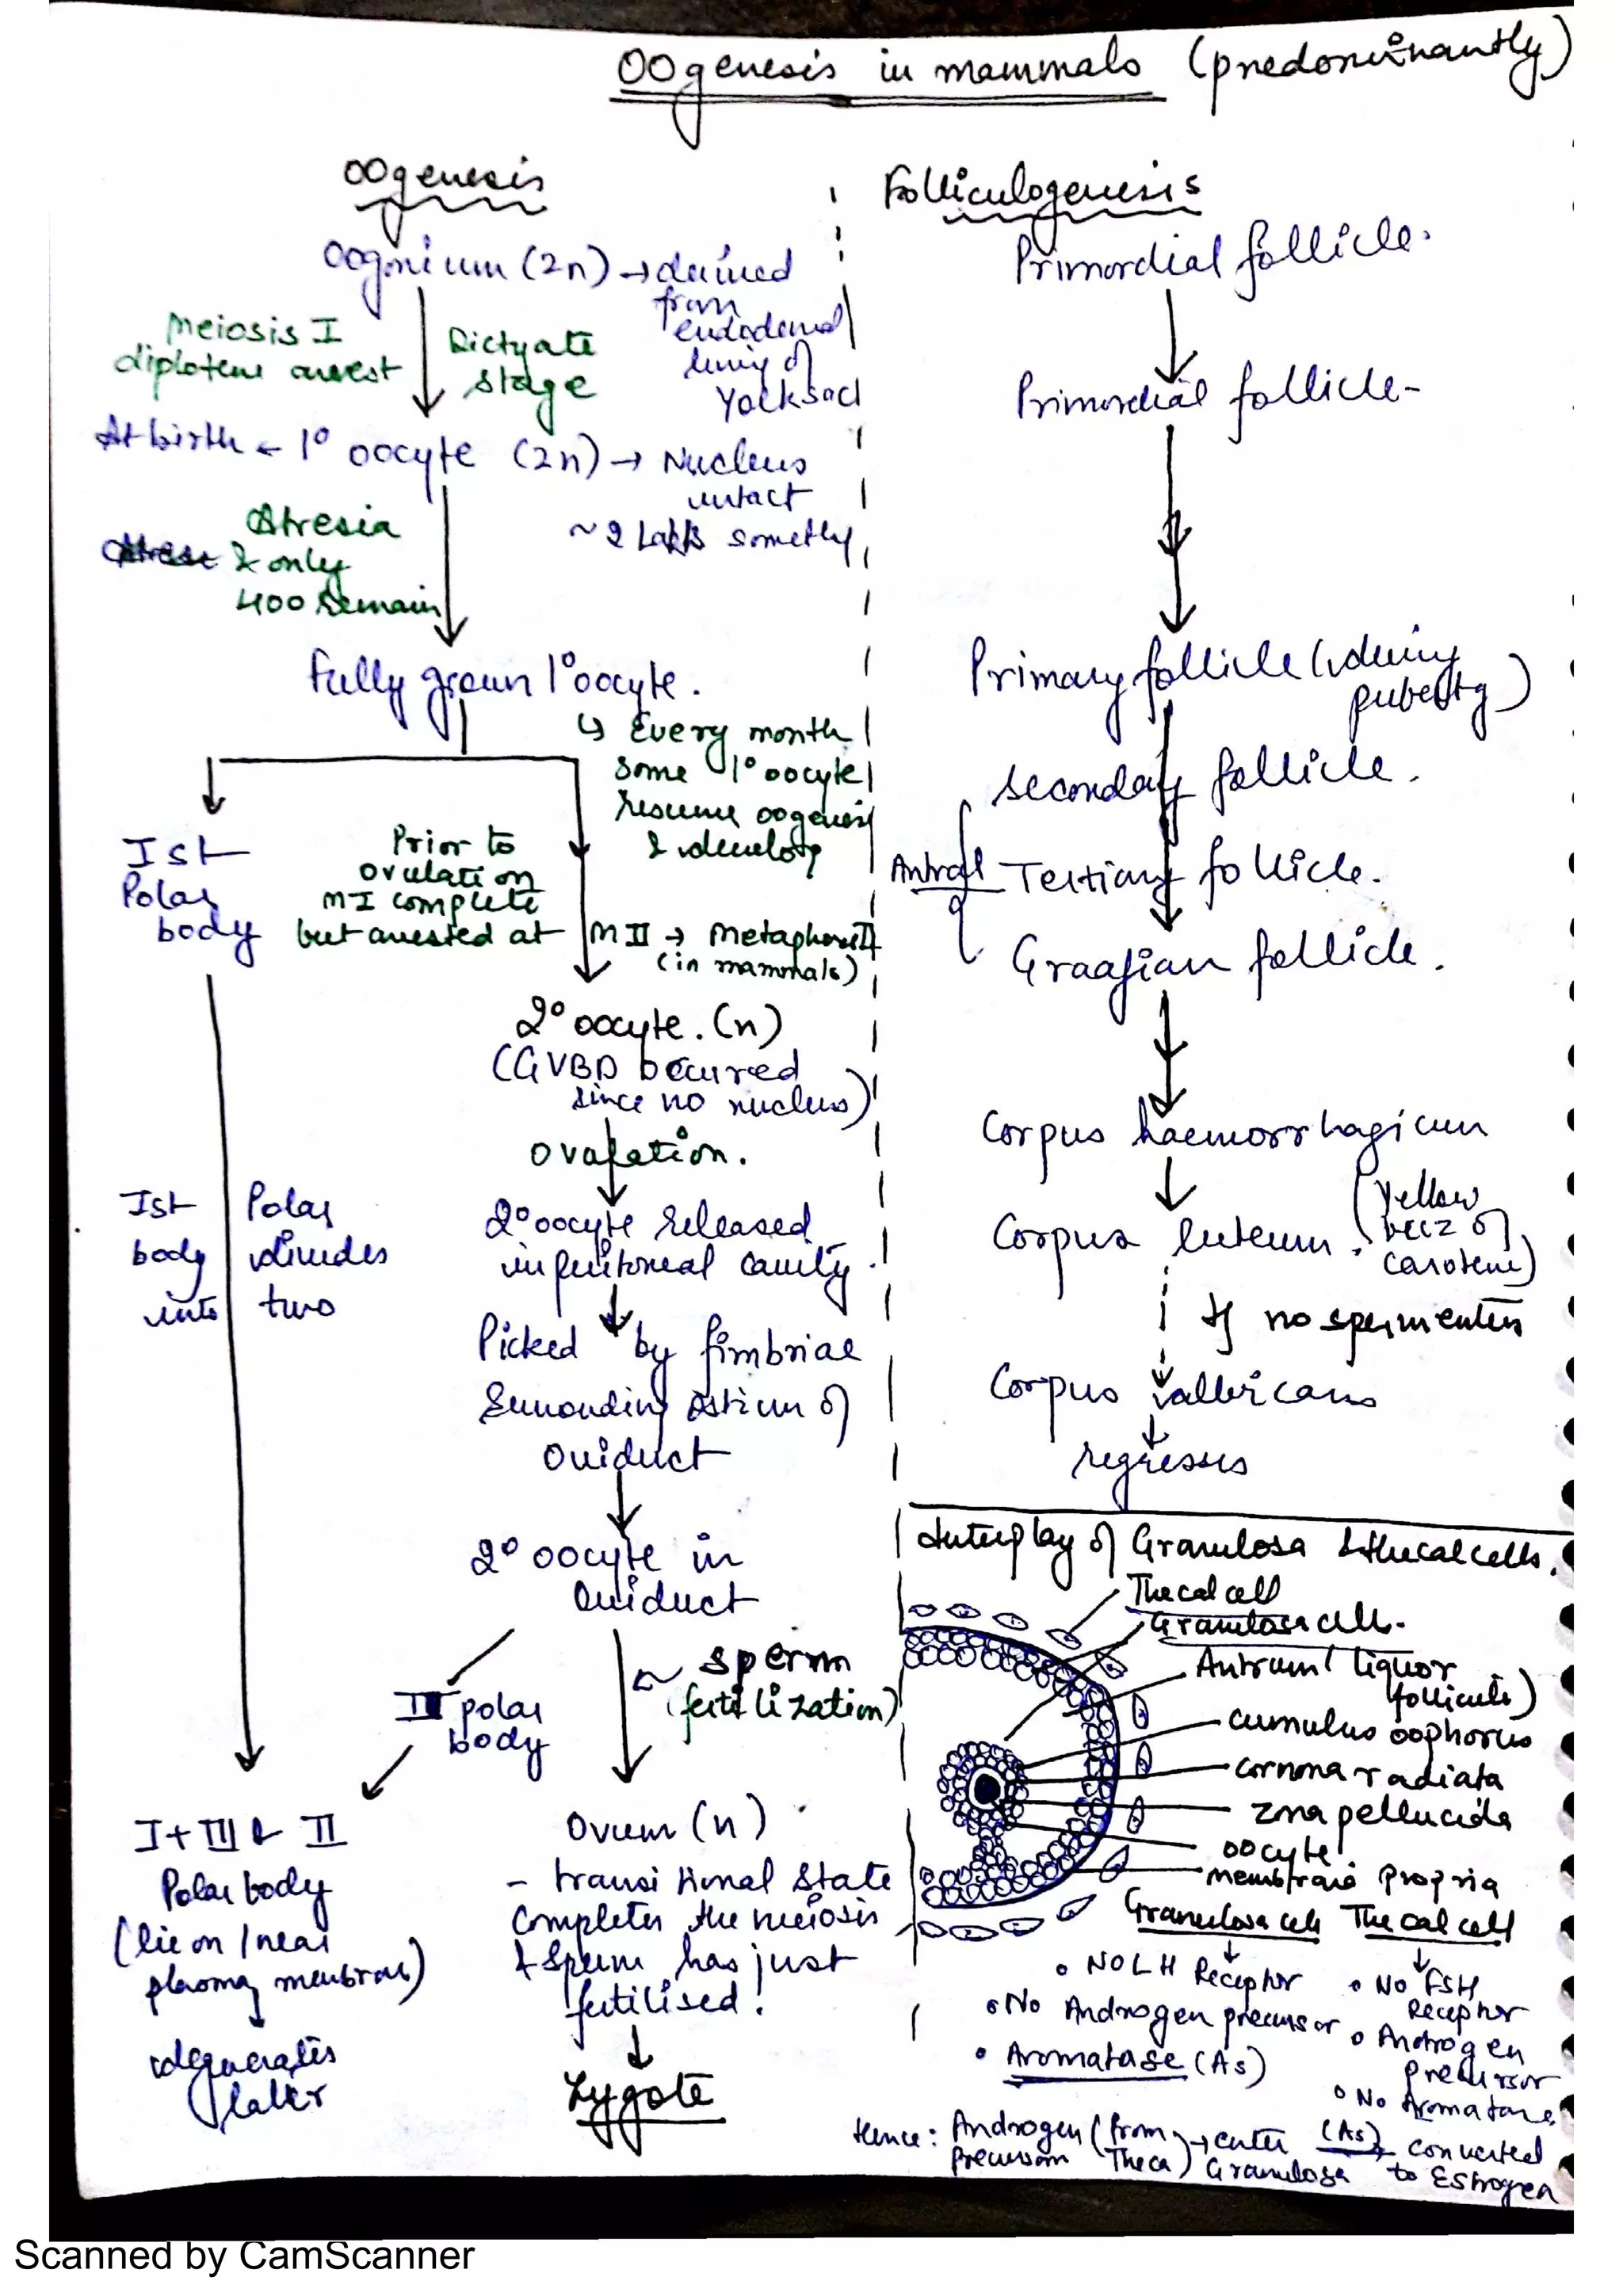 Oogenesis in mammals (predominantly)
Oogenesis
Oogonium (2n) → derived
from
endodermal
lining of
Yolk sac
Meiosis I
diplotene arrest
Dictyate
stage
At birth ← 1° oocyte (2n) → Nucleus
intact
~ 2 lakhs
Atresia
& only
400 remain
Fully grown 1° oocyte.
↳ Every month
some 1° oocyte
resume oogenesis
& develop
Ist
Polar
body
Prior to
ovulation
MI complete
but arrested at MII → Metaphase II
(in mammals)
2° oocyte. (n)
(GVBD occured
since no nucleus)
Ovulation.
2° oocyte released
in peritoneal cavity.
Picked by fimbriae
Surrounding ostium of
Oviduct
2° oocyte in
Oviduct
Ist Polar
body divides
into two
~ sperm
(fertilization)
II polar
body
I + III & II
Polar body
(lie on / near
plasma membrane)
degenerates
later
Ovum (n)
- transitional state
completes the meiosis
& sperm has just
fertilised!
Zygote
Folliculogenesis
Primordial follicle.
Primordial follicle-
Primary follicle (during
puberty)
Secondary follicle.
Antral Tertiary follicle.
Graafian follicle.
Corpus haemorrhagicum
Corpus luteum. (Yellow
becz of
carotene)
If no sperm enters
Corpus albicans
regresses
Interplay of Granulosa & thecal cells.
Thecal cell
Granulosa cell.
Antrum (liquor
folliculi)
cumulus oophorus
cornona radiata
zona pellucida
oocyte
membrana propria
Granulosa cells
• NO LH Receptor
• No Androgen precursor
• Aromatase (As)
Thecal cell
• No FSH
Receptor
• Androgen
precursor
• No Aromatase
Hence: Androgen (from → enter (As) → converted
Precursor Theca) Granulosa to Estrogen
Scanned by CamScanner